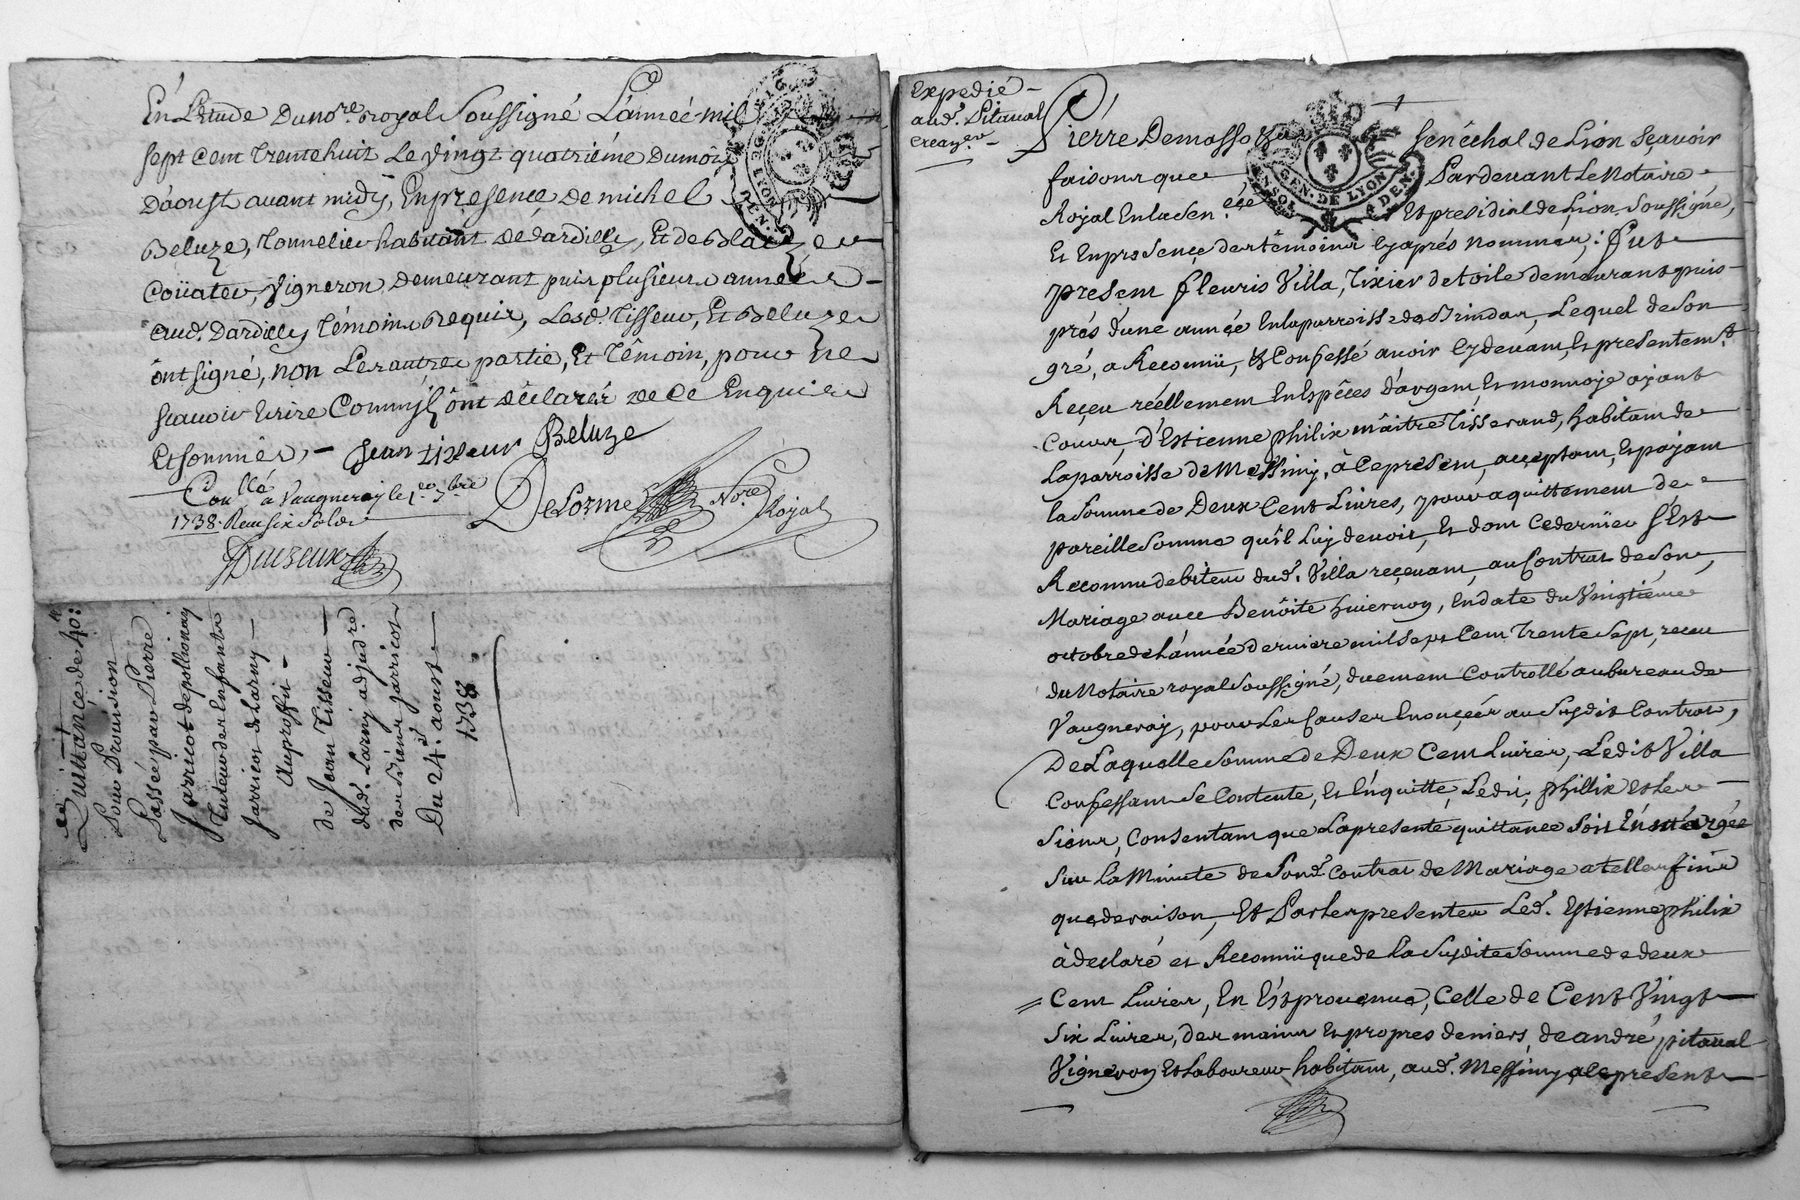 En L'Etude Du no.re Royal Soussigné L'année mil
sept cent trente huit Le vingt quatriéme Du mois
D'aoust avant midy, En presence de michel
Beluze, Tonnelier habitant de dardilly, Et de
Coüater, vigneron demeurant puis plusieurs années
aud. Dardilly Témoins Requis, Lesd. Tisseur, Et Beluze
ont signé, non Les autres partie, Et Témoin, pour ne
scavoir Ecrire Comm'ils ônt déclarés de ce Enquis
Et sommés, Jean tixseur Beluze
Con.llé à Vaugneray le 1.er 7.bre
1738. Receu six sols
DeLorme No.re Royal
Quittance de 40:
Pour Provision
Passée par Pierre
Jarricot de pollionay
Tuteur des Enfants
Jarricot de Larny
Au proffit
de Jean Tisseur
dud. Larny adjud.re
des Biens jarricot
Du 24. aoust
1738.
GEN. DE LYON
Expedié
aud. Pitaval
crean.er
Pierre Demasso Senéchal de Lion Sçavoir
faisons que Pardevant Le Notaire
Royal En la Sen.cée Et presidial de Lion Soussigné,
Et En presence des témoins Cy aprés nommés, : fut
present fleuris Villa, Tixier de toile demeurant puis
prés d'une année En la parroisse de Brindas, Lequel de son
gré, a Reconnü, Et Confessé avoir cy devant, Et presentem.t
Reçeu réellement En Espêces d'argent Et monnoje ajant
Cours, d'Estienne philix maître Tisserand, habitant de
La parroisse de Messimy, à Ce present, acçeptant, Et pajant
la Somme de Deux Cent Livres, pour aquittement de
pareille somme qu'il Luy devoit, Et dont ce dernier s'Est
Reconnu debiteur dud. Villa reçevant, au Contrat de Son
Mariage avec Benôite huiernoy, En date du Vingtiéme
octobre de L'année derniere mil Sept Cent Trente Sept, receu
du Notaire royal Soussigné, duement Controllé au bureau de
Vaugneray, pour Les Causes Enonçéés au Susdit Contrat,
De Laquelle Somme de Deux Cent Livres, Ledit Villa
Confessant se Contente, Et En quitte, Ledit, phillix Et les
Siens, Consentant que La presente quittance Soit Enmargée
Sur La Minute de Sond. Contrat de Mariage a telles fins
que de raison, Et Par les presentes Led. Estienne philix
à declaré et Reconnü que de la Susdite Somme de deux
Cent Livres, En Est provenue, Celle de Cent Vingt
Six Livres, des mains Et propres deniers, de andré pitaval
Vigneron Et Laboureur habitant, aud. Messimy a ce present